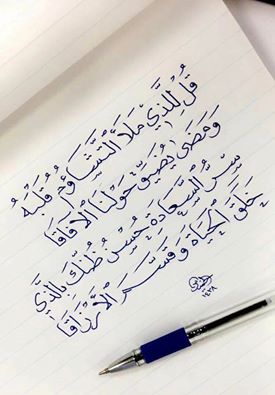 قُل لِلَّذِي مَلَأَ التَّشَاؤُمُ قَلْبَهُ
وَمَضَى يُضَيِّقُ حَوْلَنَا الآفَاقَا
سِرُّ السَّعَادَةِ حُسْنُ ظَنِّكَ بِالَّذِي
خَلَقَ الْحَيَاةَ وَقَسَّمَ الْأَرْزَاقَا
١٤٣٨